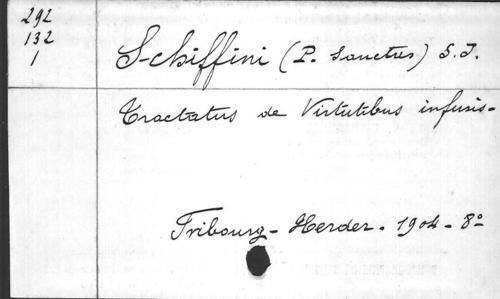 292
132
1
Schiffini (P. Sanctus) S.J.
Tractatus de Virtutibus infusis-
Fribourg - Herder - 1904 - 8º